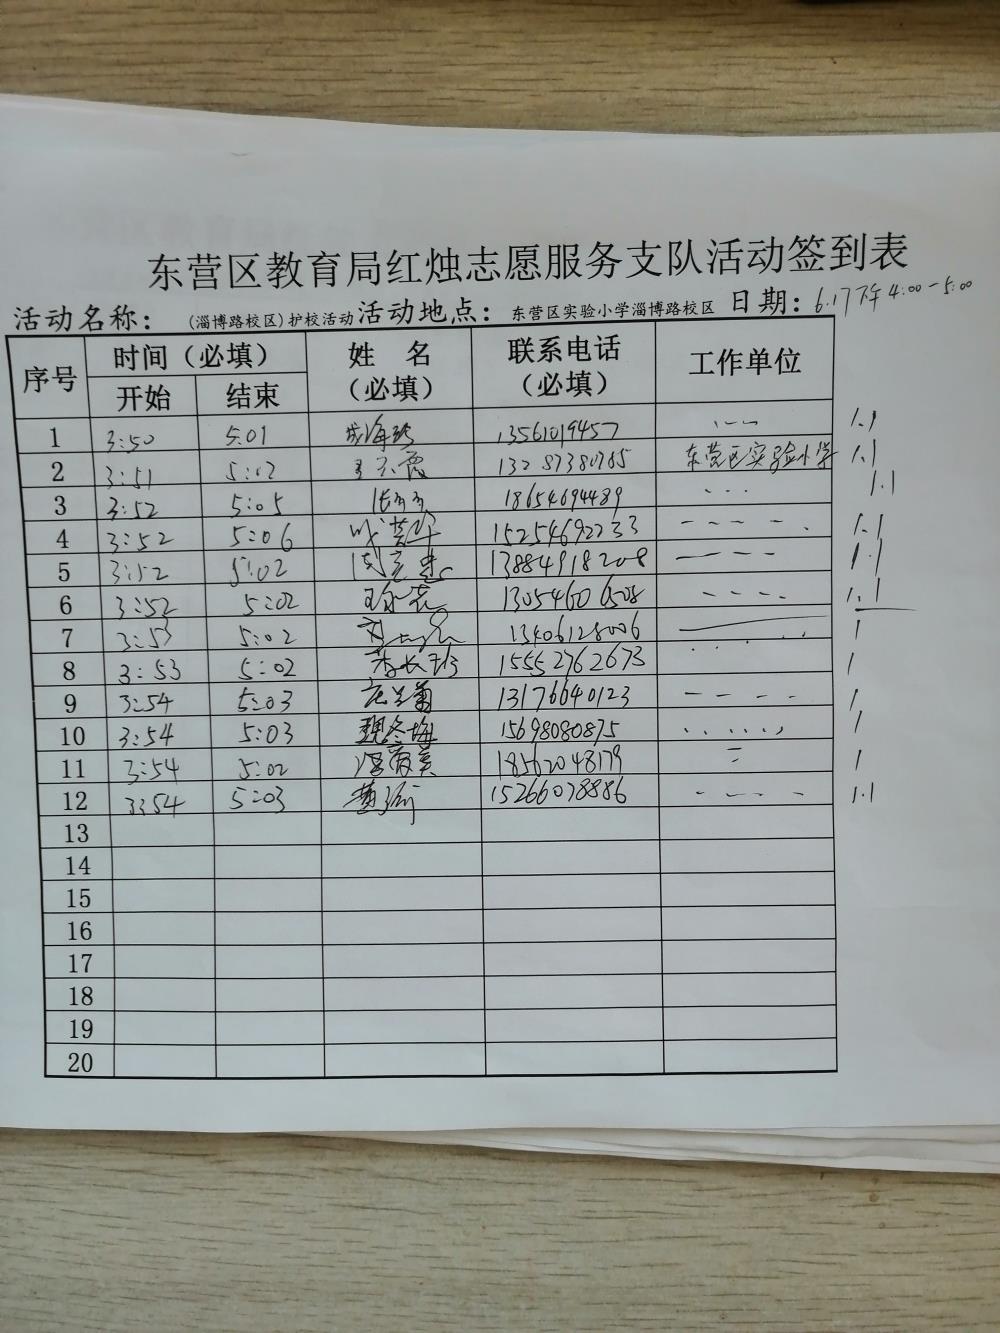 东营区教育局红烛志愿服务支队活动签到表
活动名称：（淄博路校区）护校活动 活动地点：东营区实验小学淄博路校区 日期：6.17下午4:00-5:00
序号 时间（必填） 姓 名（必填） 联系电话（必填） 工作单位
开始 结束
1 3:50 5:01 13561019457 1.1
2 3:51 5:02 东营区实验小学 1.1
3 3:52 5:05 18654694489 1.1
4 3:52 5:06 15254692233 1.1
5 3:52 5:02 13884918208 1.1
6 3:52 5:02 13054606508 1.1
7 3:53 5:02 13406128006 1
8 3:53 5:02 15552762673 1
9 3:54 5:03 13176640123 1
10 3:54 5:03 魏冬梅 15698080875 1
11 3:54 5:02 18562048179 1
12 3:54 5:03 15266078886 1.1
13
14
15
16
17
18
19
20